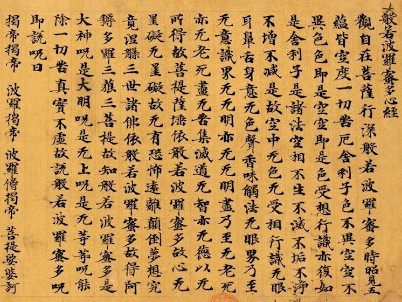 般若波羅蜜多心經
觀自在菩薩行深般若波羅蜜多時照見五
蘊皆空度一切苦厄舍利子色不異空空不
異色色即是空空即是色受想行識亦復如
是舍利子是諸法空相不生不滅不垢不淨
不增不減是故空中无色无受想行識无眼
耳鼻舌身意无色聲香味觸法无眼界乃至
无意識界无无明亦无无明盡乃至无老死
亦无老死盡无苦集滅道无智亦无德以无
所得故菩提薩埵依般若波羅蜜多故心无
罣礙无罣礙故无有恐怖遠離顛倒夢想究
竟涅槃三世諸佛依般若波羅蜜多故得阿
耨多羅三藐三菩提故知般若波羅蜜多是
大神呪是大明呪是无上呪是无等等呪能
除一切苦真實不虛故說般若波羅蜜多呪
即說呪曰
揭帝揭帝 波羅揭帝 波羅僧揭帝 菩提娑婆訶